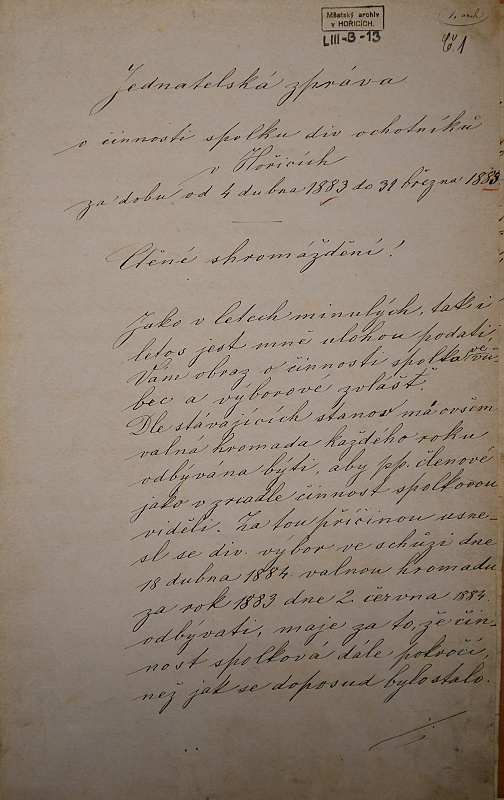 Městský archiv
v HOŘICÍCH.
LIII-B-13
Č. 1
Jednatelská zpráva
o činnosti spolku div ochotníků
v Hořicích
za dobu od 4 dubna 1883 do 31 března 1888
Ctěné shromáždění!
Jako v letech minulých, tak i
letos jest mně úlohou podati
Vám obraz o činnosti spolku vů-
bec a výborové zvlášť.
Dle stávajících stanov má ovšem
valná hromada každého roku
odbývána býti, aby pp. členové
jako v zrcadle činnost spolkovou
viděli. Za tou příčinou usne-
sl se div. výbor ve schůzi dne
18 dubna 1884 valnou hromadu
za rok 1883 dne 2. června 1884
odbývati, maje za to, že čin-
nost spolková dále pokročí,
než jak se doposud bylo stalo.